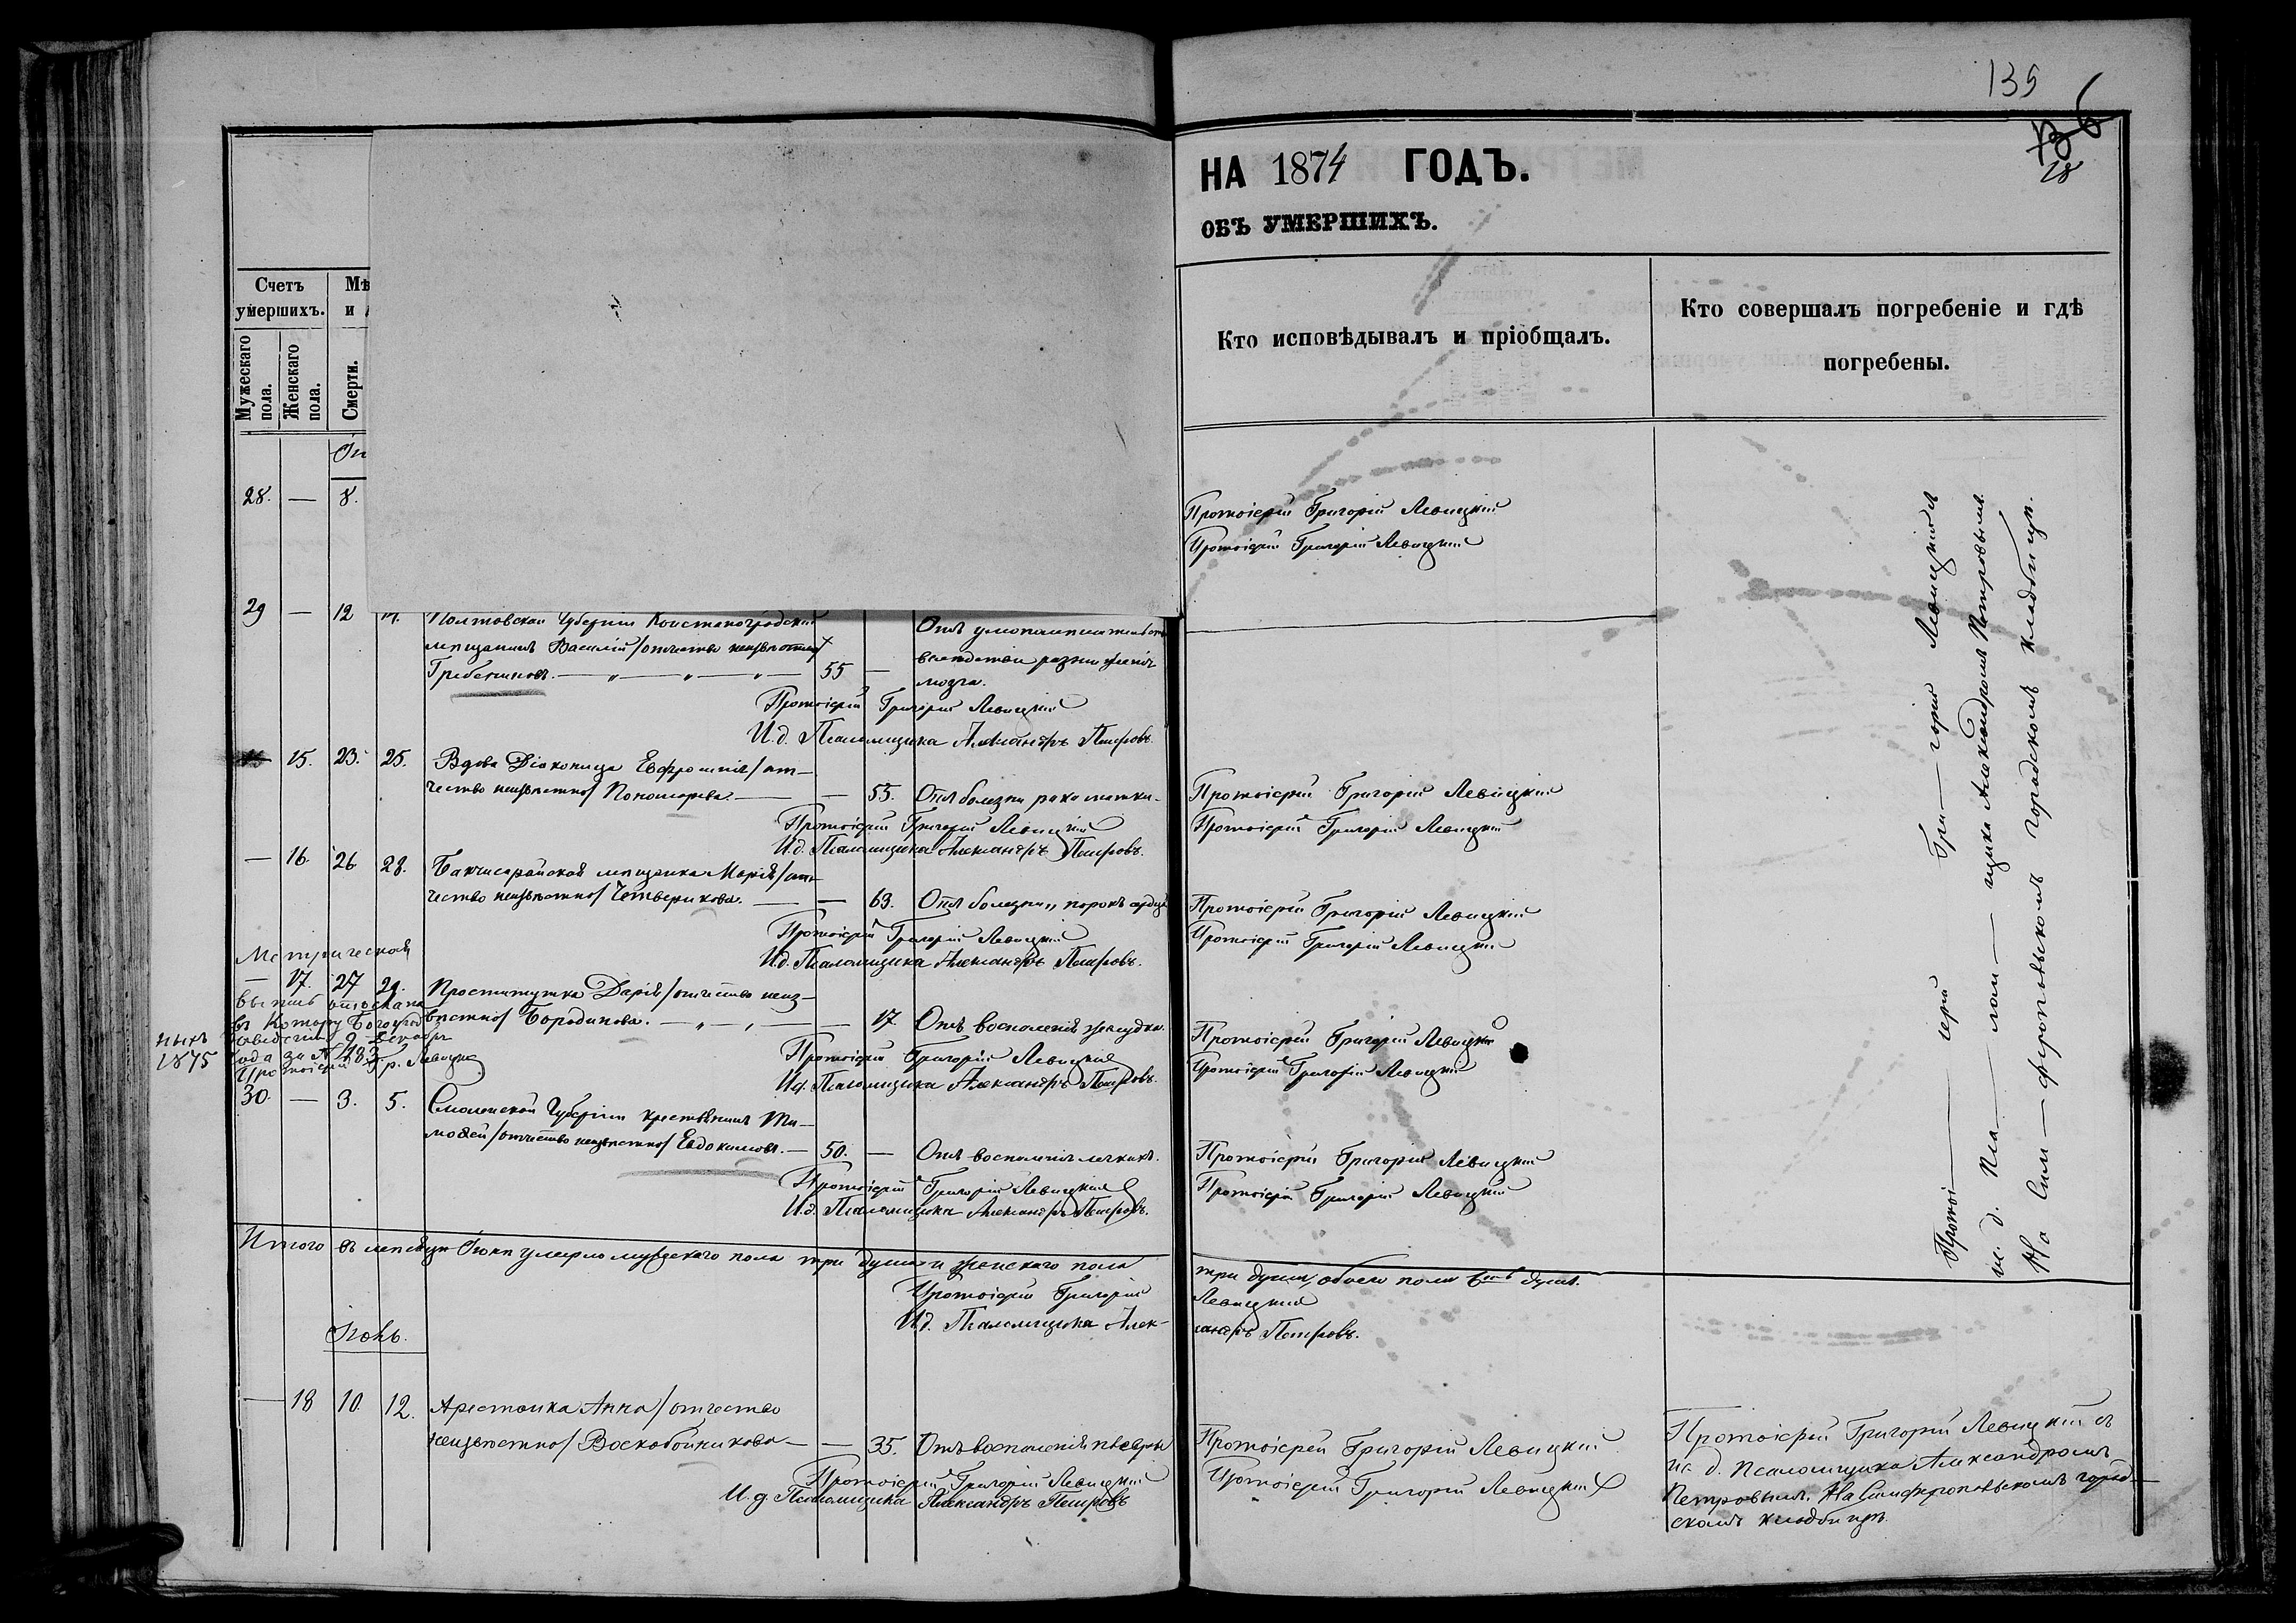 135
28
НА 1874 ГОДЪ.
ОБЪ УМЕРШИХЪ.
Счетъ
умершихъ.
Мѣ
и
Мужескаго
пола.
Женскаго
пола.
Смерти.
Кто исповѣдывалъ и пріобщалъ.
Кто совершалъ погребеніе и гдѣ
погребены.
28. — 8.
Протоіерей Григорій Левицкій
Протоіерей Григорій Левицкій
29 — 12 14. Полтовской Губерніи Констаноградскій
мещанинъ Василій /отчество неизвѣстно/
Гребенниковъ. — „ — „ — „ — 55 —
Отъ умопомешательства
вследствіи разжиженія
мозга.
Протоіерей Григорій Левицкій
И. д. Псаломщика Александръ Петровъ.
15. 23. 25. Вдова Діаконица Евфросинія /от-
чество неизвѣстно/ Пономарева. — — 55. Отъ болезни рака матки.
Протоіерей Григорій Левицкій
И. д. Псаломщика Александръ Петровъ.
Протоіерей Григорій Левицкій
Протоіерей Григорій Левицкій
— 16. 26 28. Бахчисарайской мещанка Марія /от-
чество неизвѣстно/ Четверикова. — — 63. Отъ болезни „ порокъ сердца
Протоіерей Григорій Левицкій
И. д. Псаломщика Александръ Петровъ.
Протоіерей Григорій Левицкій
Протоіерей Григорій Левицкій
Метрической
— 17. 27 29. Проститутка Дарія /отчество неиз-
вѣстно/ Бородинова. — „ — „ — — 17. Отъ воспаленія желудка.
выпись отослана
въ Контору Богоугод
ныхъ заведеній 9 Декабря
1875 года за № 183
Протоіерей Гр. Левицкій
Протоіерей Григорій Левицкій
И. д. Псаломщика Александръ Петровъ.
Протоіерей Григорій Левицкій
Протоіерей Григорій Левицкій
30. — 3. 5. Смоленской Губерніи крестьянинъ Ти-
мофей /отчество неизвѣстно/ Евдокимовъ. — 50. — Отъ воспаленія легкихъ.
Протоіерей Григорій Левицкій
И. д. Псаломщика Александръ Петровъ.
Протоіерей Григорій Левицкій
Протоіерей Григорій Левицкій
Протоі — ерей Гри — горій Левицкій съ
и. д. Пса — лом — щика Александромъ Петровымъ.
На Сим — феропольскомъ городскомъ кладбищѣ.
Итого въ месяцѣ Іюнѣ умерло мужескаго пола три души и женскаго пола
три души, обоего пола 6ть душъ.
Протоіерей Григорій Левицкій
И. д. Псаломщика Алек-
сандръ Петровъ.
Іюль.
— 18 10. 12. Арестанка Анна /отчество
неизвѣстно/ Воскобойникова — — 35. Отъ воспаленія плевры
Протоіерей Григорій Левицкій
И. д. Псаломщика Александръ Петровъ
Протоіерей Григорій Левицкій
Протоіерей Григорій Левицкій
Протоіерей Григорій Левицкій съ
и. д. Псаломщика Александромъ
Петровымъ. На Симферопольскомъ город-
скомъ кладбищѣ.